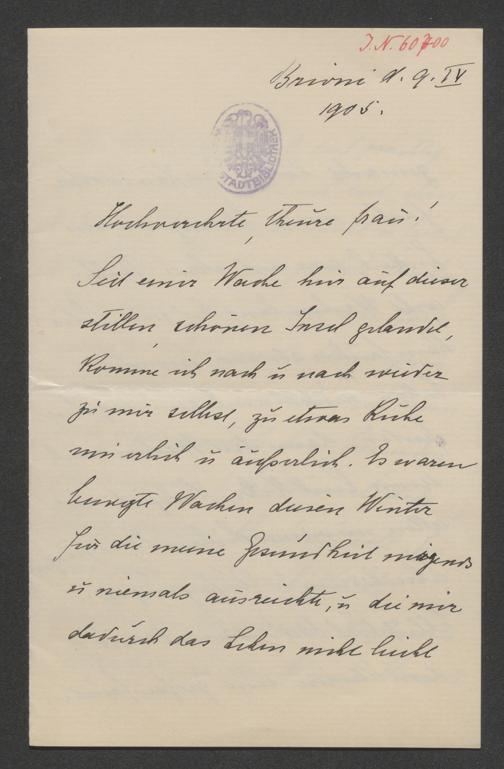 J.N. 60700
Brioni d. 9. IV
1905.
STADTBIBLIOTHEK
Hochverehrte, theure Frau!
Seit einer Woche hier auf dieser
stillen, schönen Insel gelandet,
komme ich nach u nach wieder
zu mir selbst, zu etwas Ruhe
innerlich u äußerlich. Es waren
bewegte Wochen diesen Winter
für die meine Gesundheit nirgends
u niemals ausreichte, u die mir
dadurch das Leben nicht leicht